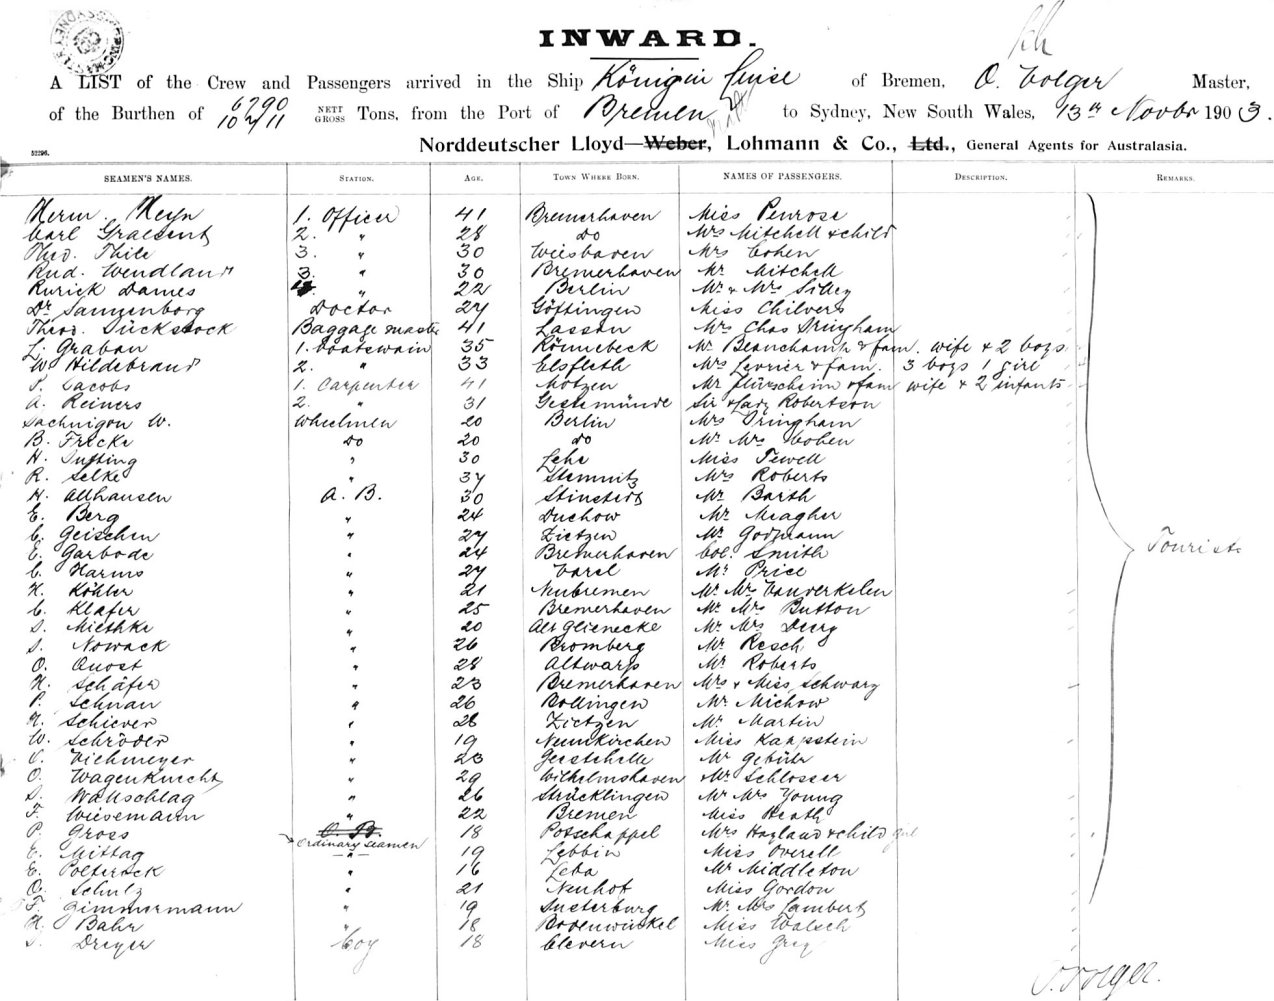 INWARD.
A LIST of the Crew and Passengers arrived in the Ship Königin Luise of Bremen, O. Volger Master,
of the Burthen of 6790 10711 NETT GROSS Tons, from the Port of Bremen to Sydney, New South Wales, 13th Novbr 1903.
52296.
Norddeutscher Lloyd—Weber, Lohmann & Co., Ltd., General Agents for Australasia.
SEAMEN'S NAMES. STATION. AGE. TOWN WHERE BORN. NAMES OF PASSENGERS. DESCRIPTION. REMARKS.
Herm. Meyn 1. Officer 41 Bremerhaven Miss Penrose
Carl 2. " 28 do Mrs Mitchell & child
Theo. Thile 3. " 30 Wiesbaven Mrs Cohen
Rud. Wendland 3. " 30 Bremerhaven Mr Mitchell
Rurick Dames " 22 Berlin Mr & Mrs
Dr Sannenborg Doctor 27 Göttingen Miss Chilvers
Theod. Dückstock Baggage master 41 Lassan Mrs Chas Dringham
L. Graban 1. Boatswain 35 Rönnebeck Mr Beauchamp & fam. wife & 2 boys
W. Hildebrand 2. " 33 Elsfleth Mrs & fam. 3 boys 1 girl
Jacobs 1. Carpenter 41 Motzen Mr Flürscheim & fam wife & 2 infants
A. Reiners 2. " 31 Gestemünde Sir & Lady Robertson
Sachnigon W. Wheelmen 20 Berlin Mrs Dringham
B. Fricke do 20 do Mr Mrs Cohen
H. " 30 Lehe Miss Jewell
R. Selke " 37 Stemnitz Mrs Roberts
H. Allhausen A. B. 30 Mr Barth
E. Berg " 24 Duchow Mr Meagher
C. Geischen " 27 Zietzen Mr Godmann
E. Garbode " 24 Bremerhaven Col. Smith
C. Harms " 27 Varel Mr Price
H. Köhler " 21 Neubremen Mr Mrs Vanderkelen
C. Klafer " 25 Bremerhaven Mr Mrs Button
S. Miethke " 20 Alt Glienecke Mr Mrs
S. Nowack " 26 Bromberg Mr Resch
O. Quost " 28 Altwarp Mr Roberts
H. Schäfer " 23 Bremerhaven Mrs & Miss Schwarz
P. Schnau " 26 Bollingen Mr Michow
H. Schiever " 28 Zietzen Mr Martin
W. Schröder " 19 Neunkirchen Miss Kappstein
C. Viehmeyer " 23 Mr Gebühr
O. Wagenknecht " 29 Wilhelmshaven Mr Schlosser
S. Wallschlag " 26 Strücklingen Mr Mrs Young
F. Wiesemann " 22 Bremen Miss Heath
P. Gross O. B. 18 Potschappel Mrs Hayland & child girl
Ordinary Seamen
E. Mittag " 19 Lebbin Miss Overell
E. " 16 Leba Mr Middleton
O. Schulz " 21 Neuhof Miss Gordon
F. Zimmermann " 19 Insterburg Mr Mrs Lambert
H. Bahr " 18 Bodenwinkel Miss Walsch
S. Dreyer Boy 18 Clevern Miss Grey
Tourists
O. Volger.